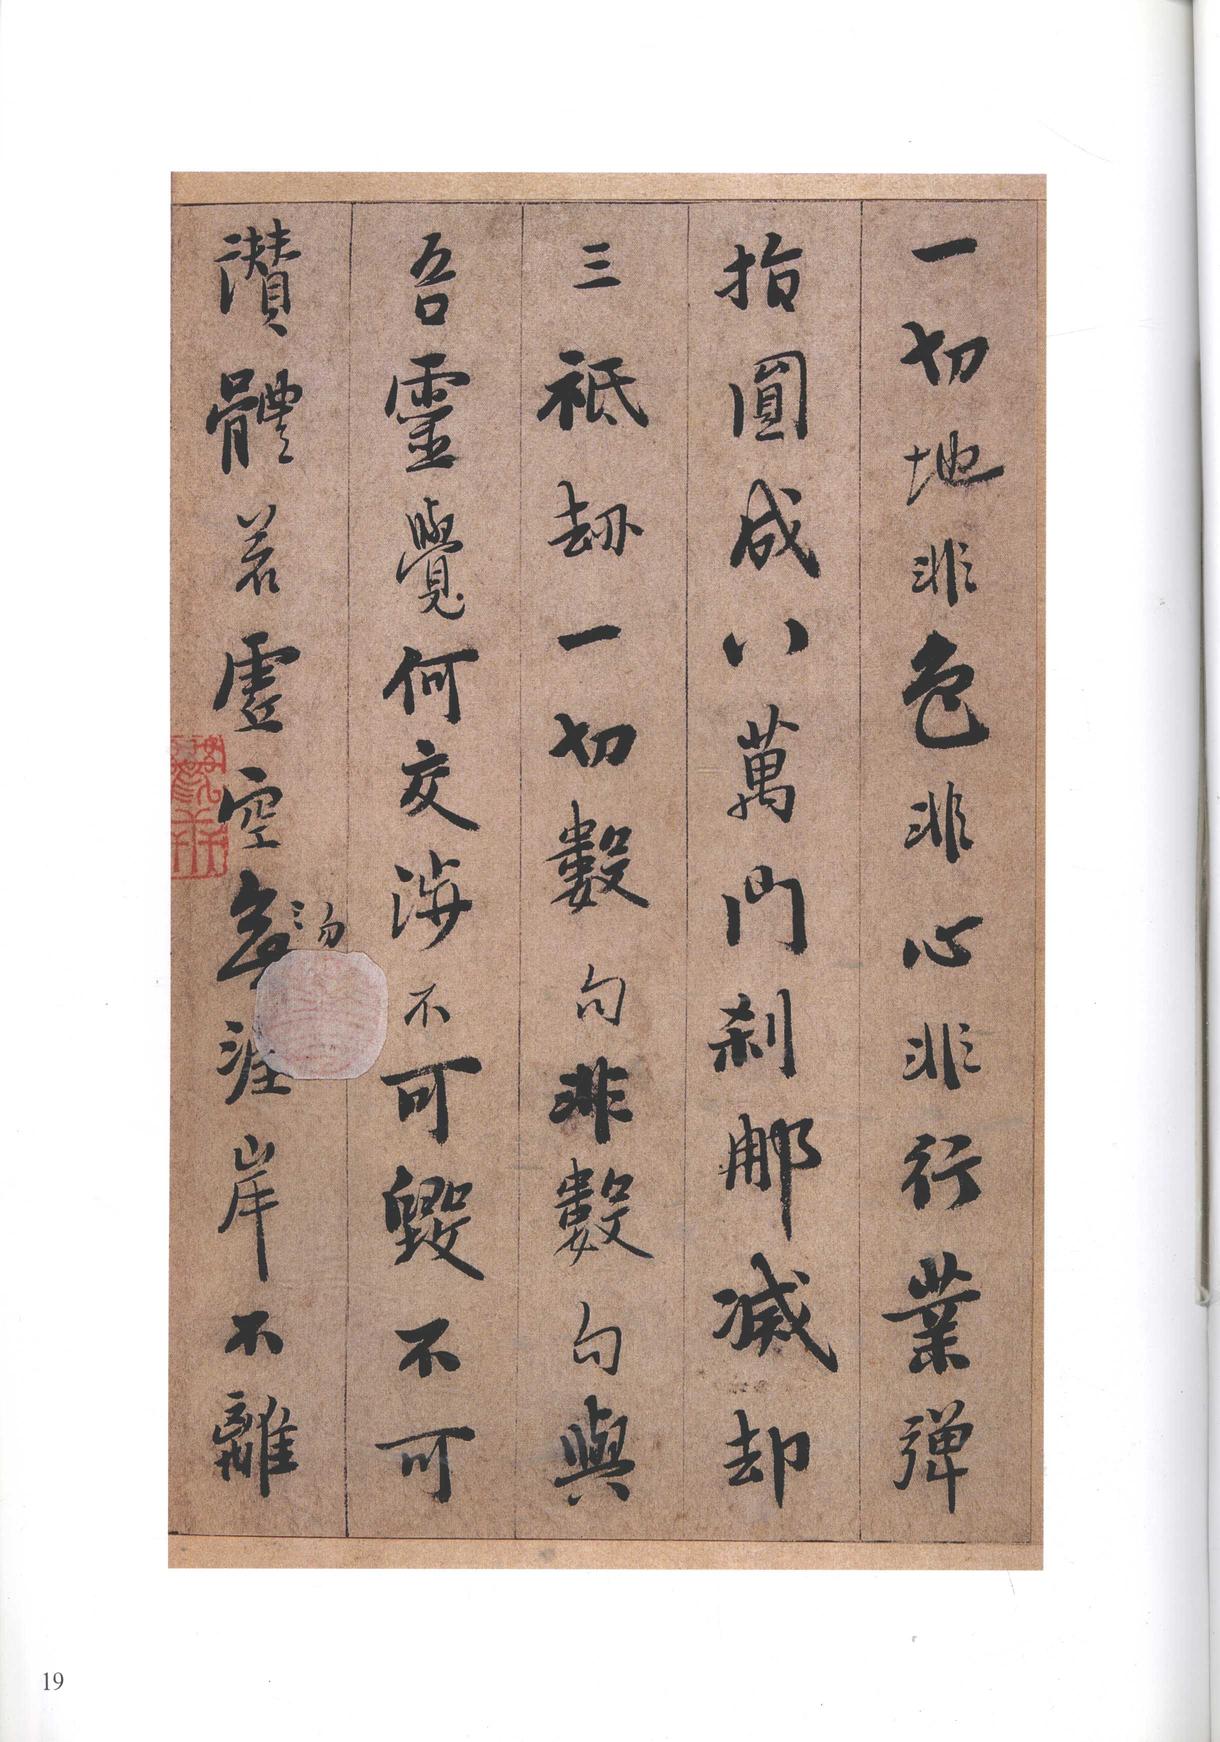 一切地非色非心非行業彈
指圓成八萬門刹那滅却
三祇劫一切數句非數句與
吾靈覺何交涉不可毀不可
讚體若虛空勿涯岸不離
19